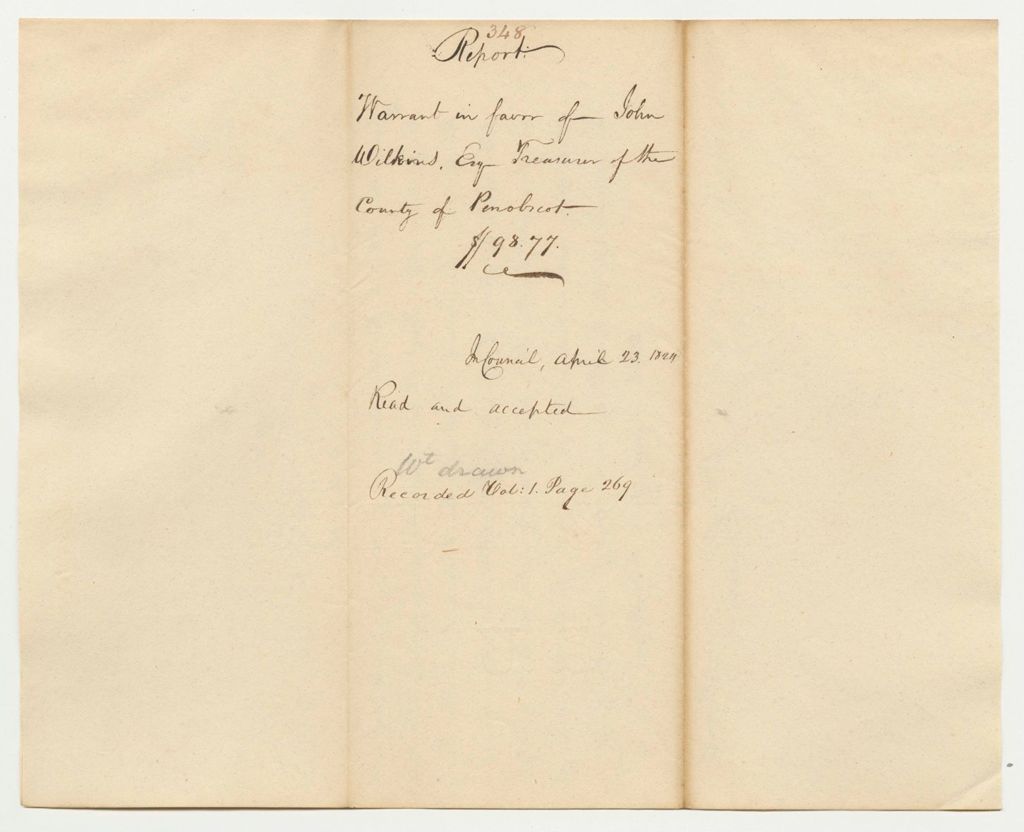 348
Report.
Warrant in favor of John
Wilkins, Esq Treasurer of the
County of Penobscot.
$98.77.
In Council, April 23. 1824
Read and accepted
Wt drawn
Recorded Vol: 1. Page 269